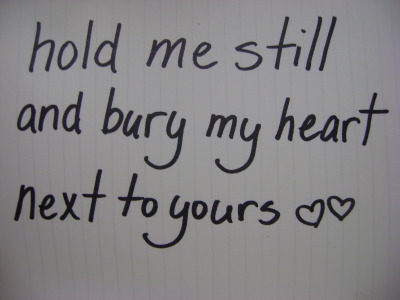 hold me still
and bury my heart
next to yours ♡♡